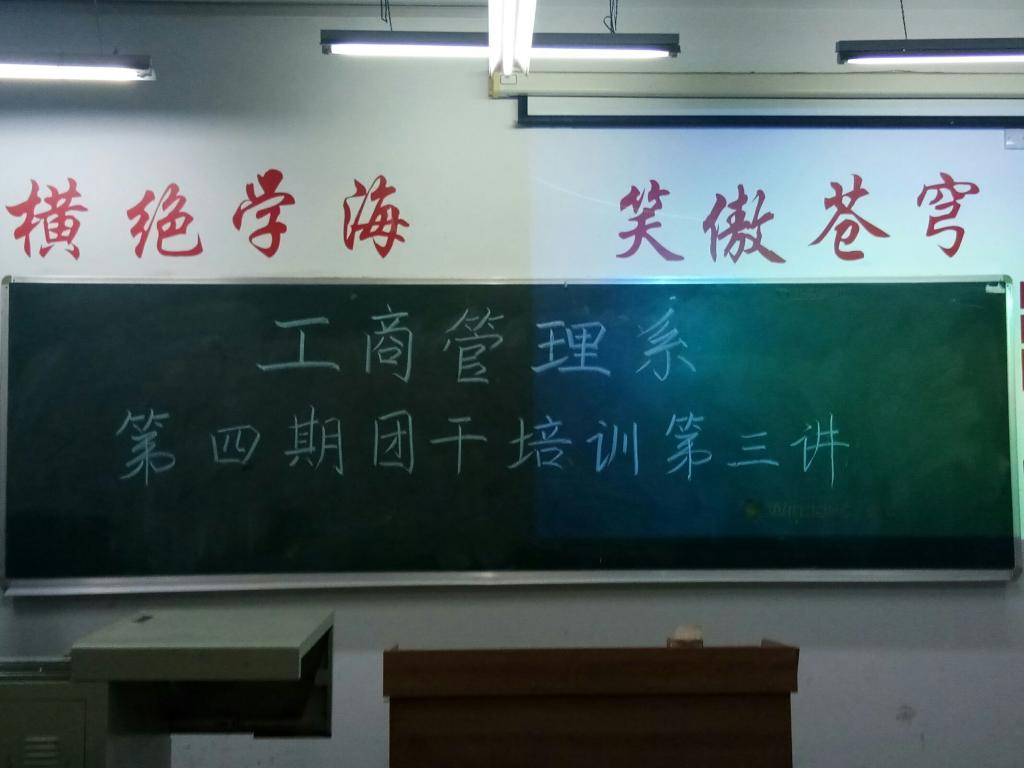 横绝学海 笑傲苍穹
工商管理系
第四期团干培训第三讲